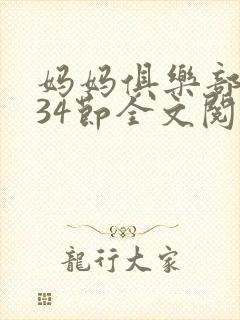 妈妈俱乐部
34节全文阅
龍行大家